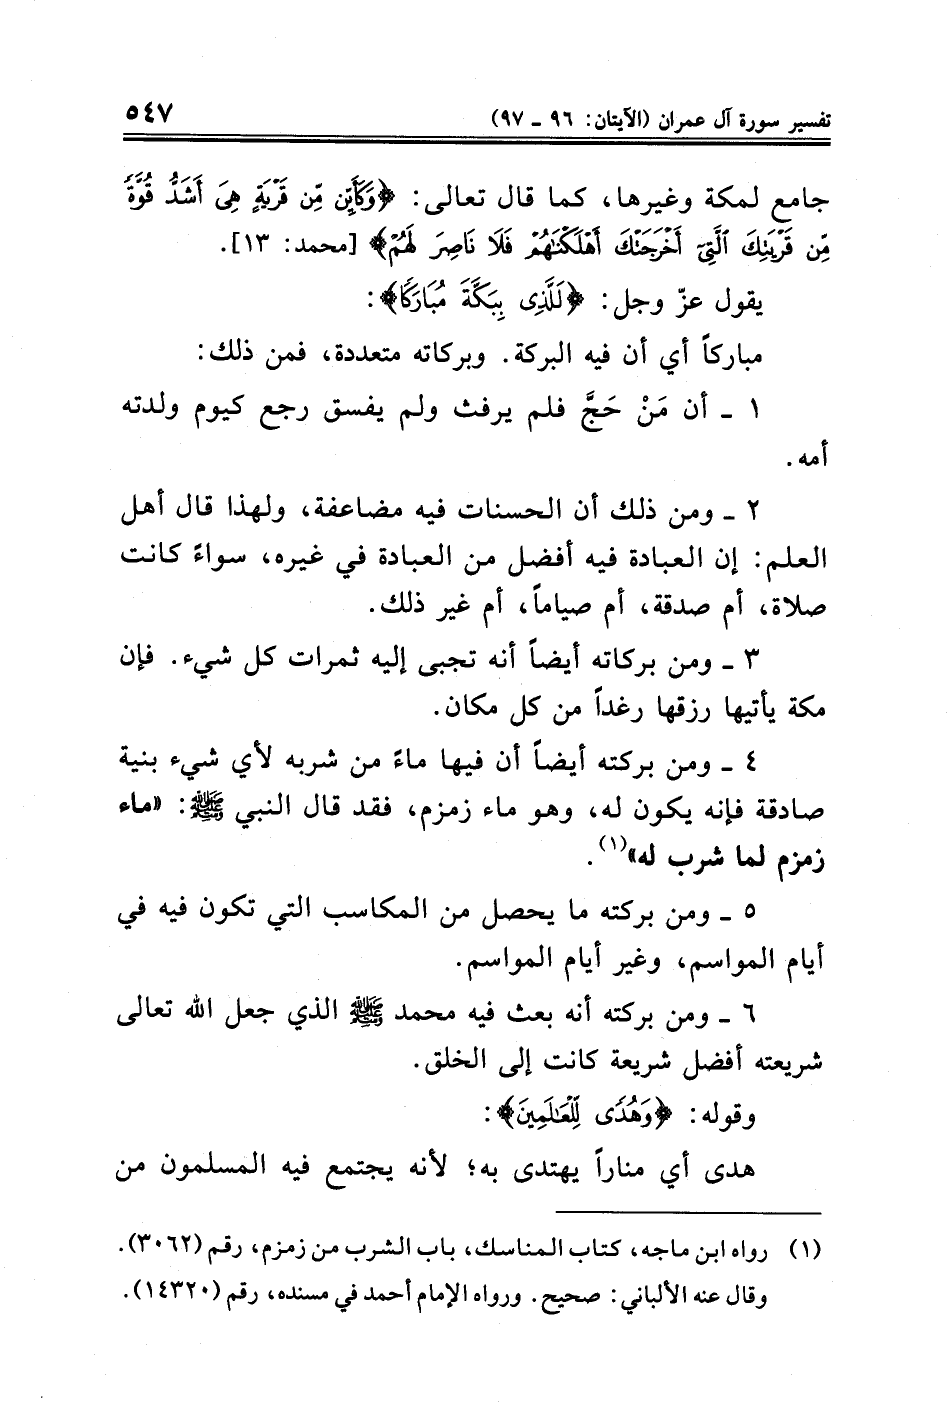 تفسير سورة آل عمران (الآيتان: ٩٦ ـ ٩٧) ٥٤٧
جامع لمكة وغيرها، كما قال تعالى: ﴿وَكَأَيِّن مِّن قَرْيَةٍ هِىَ أَشَدُّ قُوَّةً
مِّن قَرْيَتِكَ ٱلَّتِىٓ أَخْرَجَتْكَ أَهْلَكْنَٰهُمْ فَلَا نَاصِرَ لَهُمْ﴾ [محمد: ١٣].
يقول عزّ وجل: ﴿لَلَّذِى بِبَكَّةَ مُبَارَكًا﴾:
مباركاً أي أن فيه البركة. وبركاته متعددة، فمن ذلك:
١ ـ أن مَنْ حَجَّ فلم يرفث ولم يفسق رجع كيوم ولدته
أمه.
٢ ـ ومن ذلك أن الحسنات فيه مضاعفة، ولهذا قال أهل
العلم: إن العبادة فيه أفضل من العبادة في غيره، سواءً كانت
صلاة، أم صدقة، أم صياماً، أم غير ذلك.
٣ ـ ومن بركاته أيضاً أنه تجبى إليه ثمرات كل شيء. فإن
مكة يأتيها رزقها رغداً من كل مكان.
٤ ـ ومن بركته أيضاً أن فيها ماءً من شربه لأي شيء بنية
صادقة فإنه يكون له، وهو ماء زمزم، فقد قال النبي ﷺ: «ماء
زمزم لما شرب له»(١).
٥ ـ ومن بركته ما يحصل من المكاسب التي تكون فيه في
أيام المواسم، وغير أيام المواسم.
٦ ـ ومن بركته أنه بعث فيه محمد ﷺ الذي جعل الله تعالى
شريعته أفضل شريعة كانت إلى الخلق.
وقوله: ﴿وَهُدًى لِّلْعَٰلَمِينَ﴾:
هدى أي مناراً يهتدى به؛ لأنه يجتمع فيه المسلمون من
(١) رواه ابن ماجه، كتاب المناسك، باب الشرب من زمزم، رقم (٣٠٦٢).
وقال عنه الألباني: صحيح. ورواه الإمام أحمد في مسنده، رقم (١٤٣٢٠).